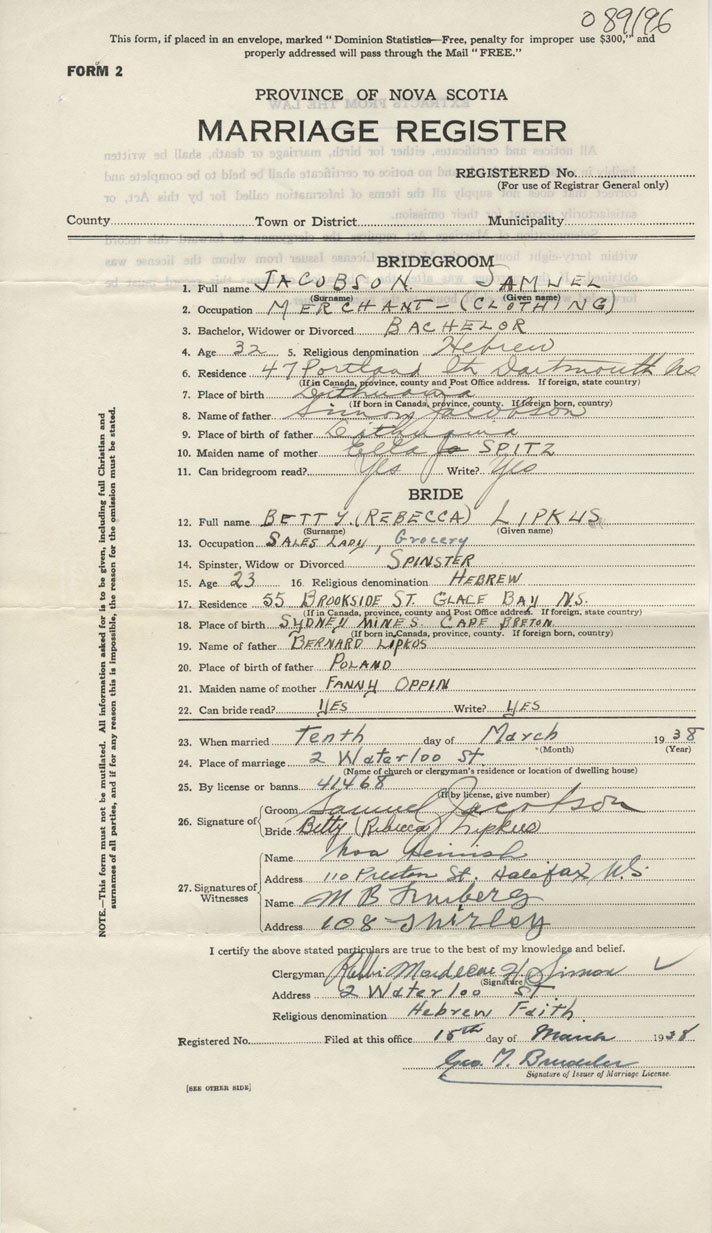 089196
This form, if placed in an envelope, marked " Dominion Statistics—Free, penalty for improper use $300," and
properly addressed will pass through the Mail " FREE."
FORM 2
PROVINCE OF NOVA SCOTIA
MARRIAGE REGISTER
REGISTERED No.
(For use of Registrar General only)
County Town or District Municipality
BRIDEGROOM
1. Full name JACOBSON SAMUEL
(Surname) (Given name)
2. Occupation MERCHANT - (CLOTHING)
3. Bachelor, Widower or Divorced BACHELOR
4. Age 32 5. Religious denomination Hebrew
6. Residence 47 Portland St. Dartmouth NS
(If in Canada, province, county and Post Office address. If foreign, state country)
7. Place of birth Lithuania
(If born in Canada, province, county. If foreign born, country)
8. Name of father Simon Jacobson
9. Place of birth of father Lithuania
10. Maiden name of mother Ella SPITZ
11. Can bridegroom read? Yes Write? Yes
BRIDE
12. Full name BETTY (REBECCA) LIPKUS
(Surname) (Given name)
13. Occupation SALES LADY, Grocery
14. Spinster, Widow or Divorced SPINSTER
15. Age 23 16. Religious denomination HEBREW
17. Residence 55 BROOKSIDE ST. GLACE BAY N.S.
(If in Canada, province, county and Post Office address. If foreign, state country)
18. Place of birth SYDNEY MINES. CAPE BRETON
(If born in Canada, province, county. If foreign born, country)
19. Name of father BERNARD LIPKUS
20. Place of birth of father POLAND
21. Maiden name of mother FANNY OPPIN
22. Can bride read? YES Write? YES
23. When married Tenth day of March 1938
(Month) (Year)
24. Place of marriage 2 Waterloo St.
(Name of church or clergyman's residence or location of dwelling house)
25. By license or banns 41468
(If by license, give number)
26. Signature of Groom Samuel Jacobson
Bride Betty (Rebecca) Lipkus
27. Signatures of Witnesses
Name
Address 110 Preston St. Halifax N.S.
Name M B
Address 108 Shirley
I certify the above stated particulars are true to the best of my knowledge and belief.
Clergyman Rabbi H. Simon
(Signature)
Address 2 Waterloo St
Religious denomination Hebrew Faith
Registered No. Filed at this office 15th day of March 1938
Geo. T.
Signature of Issuer of Marriage License
[SEE OTHER SIDE]
NOTE.—This form must not be mutilated. All information asked for is to be given, including full Christian and
surnames of all parties, and if for any reason this is impossible, the reason for the omission must be stated.